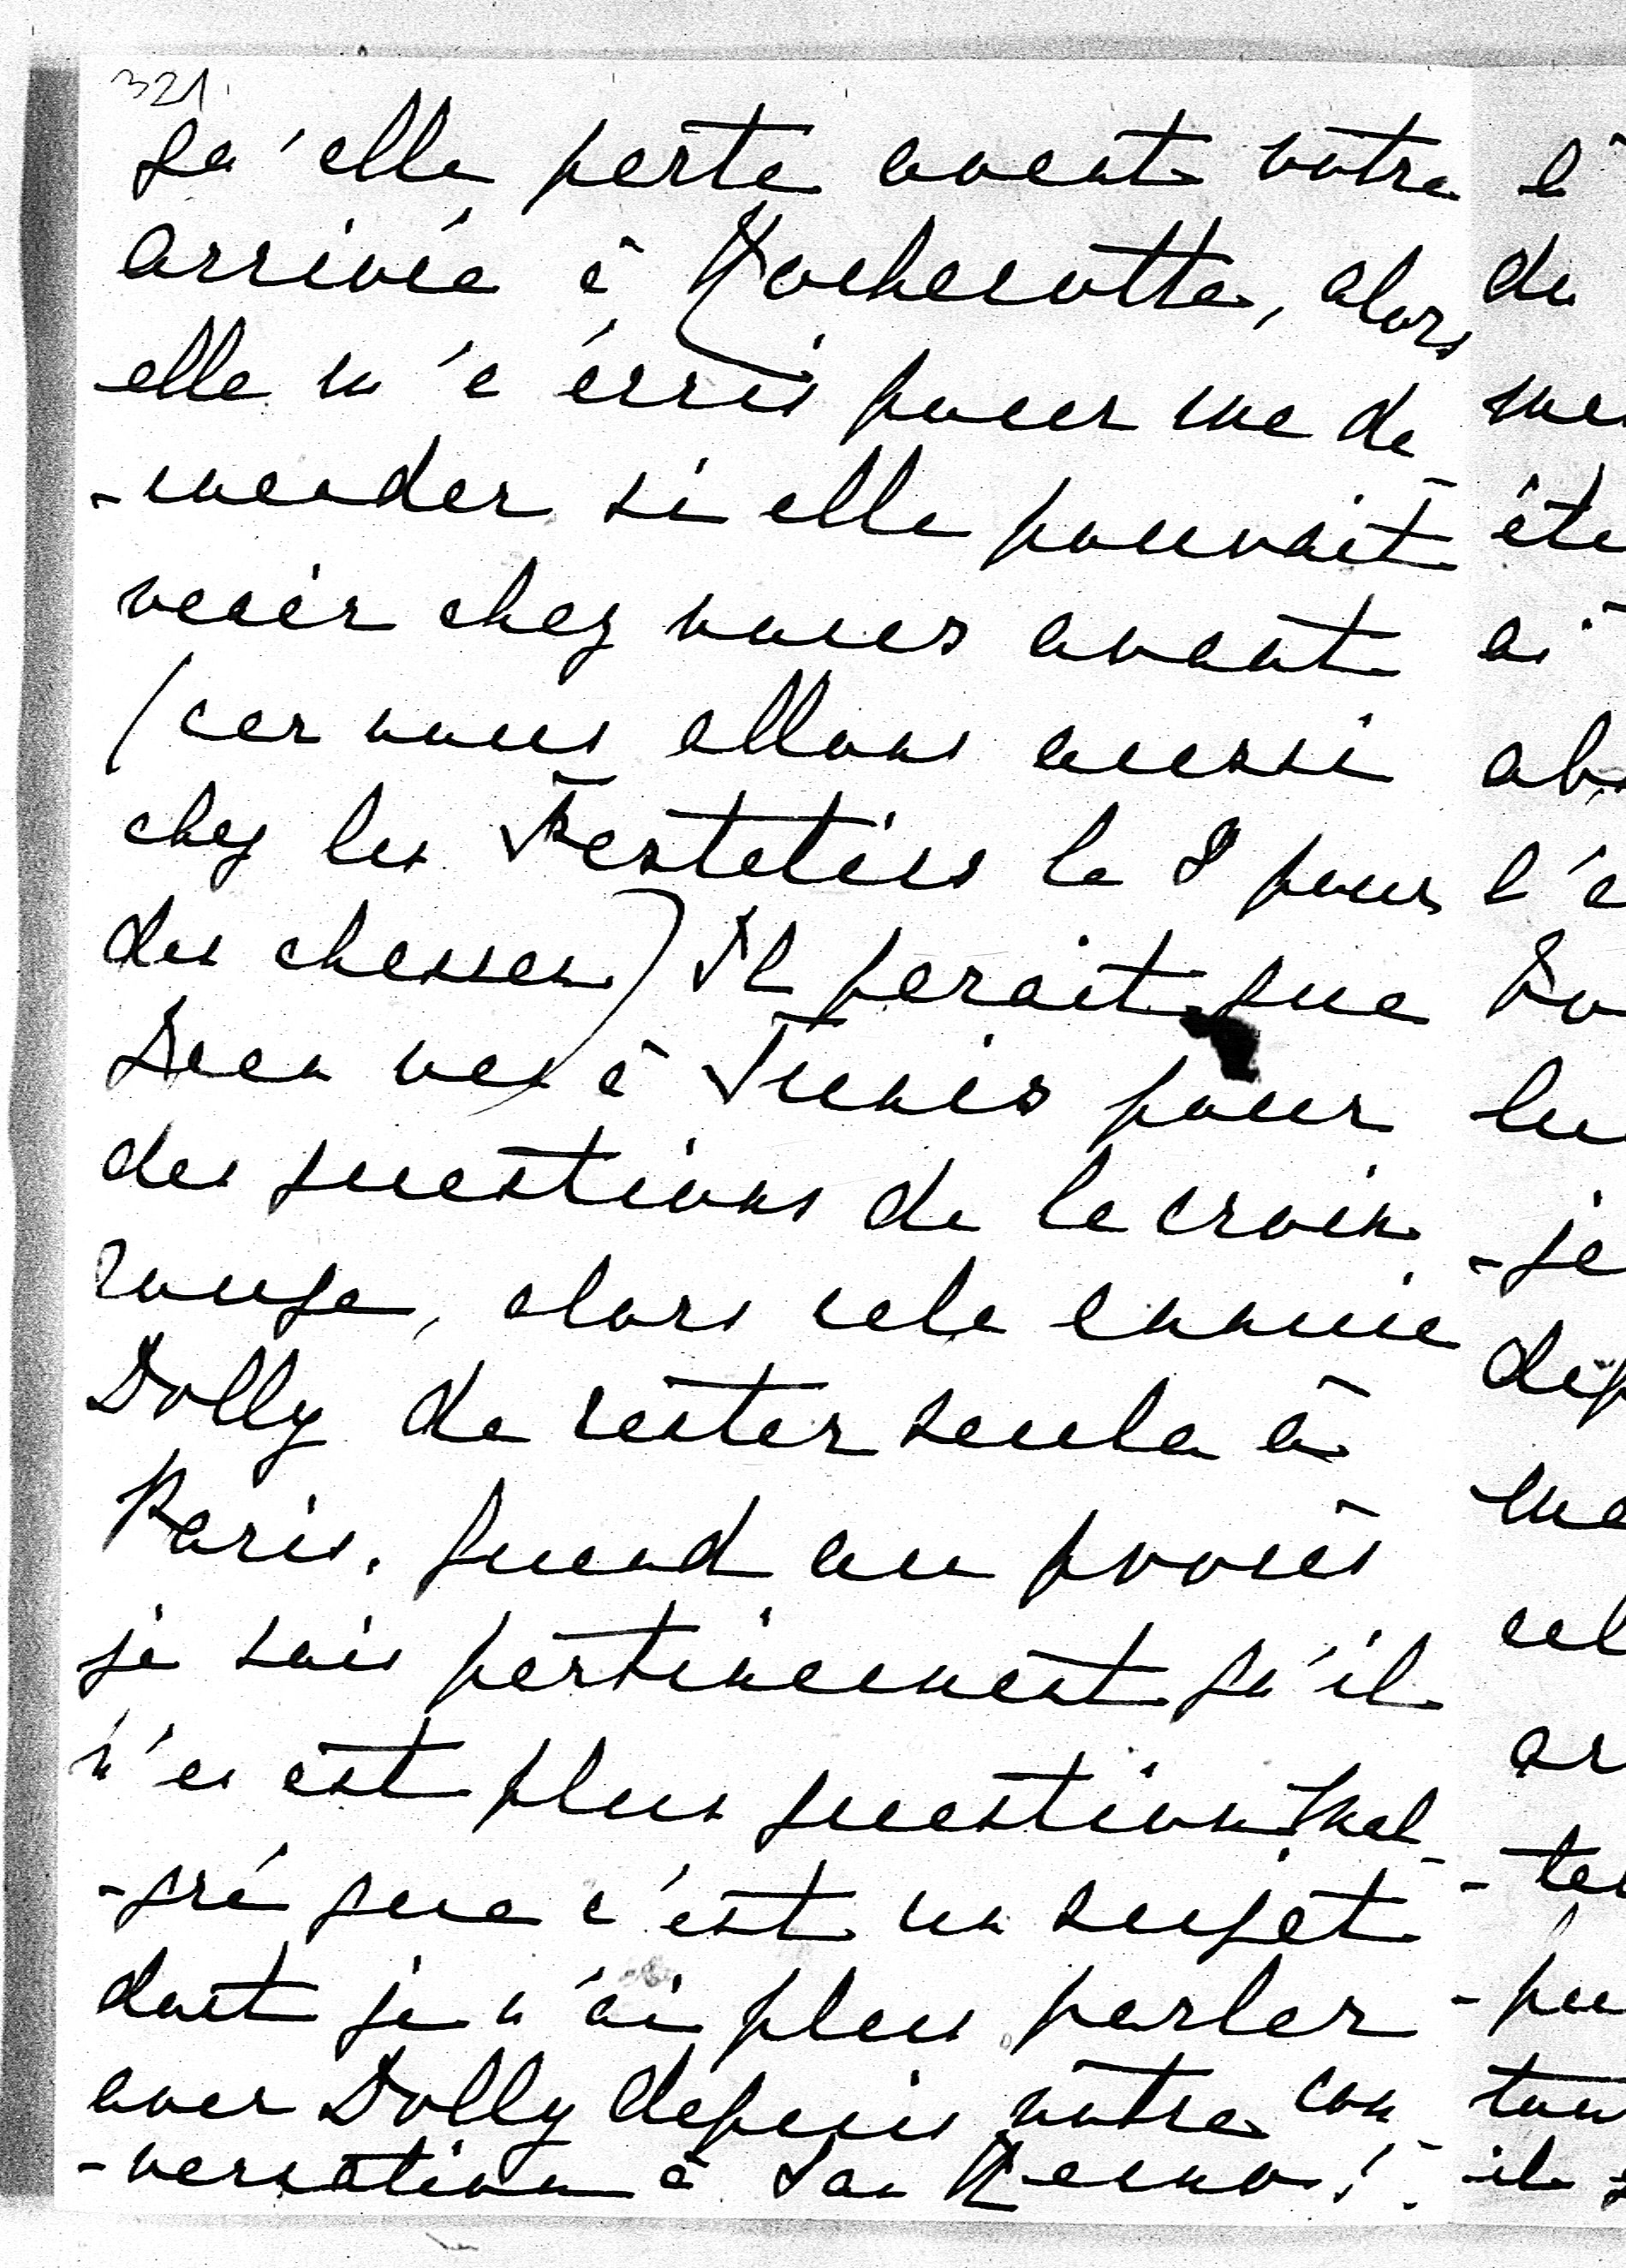 321.
qu'elle parte avant votre
arrivée à Rochecotte, alors
elle m'a écris pour me de
-mander si elle pouvait
venir chez nous avant
(car nous allons aussi
chez les Festetics le 8 pour
des chasses) Il parait que
va à Tunis pour
des questions de la croix
rouge, alors cela ennuie
Dolly de rester seule à
Paris. Quand au procès
je sais pertinemment qu'il
n'en est plus question mal
-gré que c'est un sujet
dont je n'ai plus parler
avec Dolly depuis notre con
-versation à San Remo!
l'
du
été
ai
l'a
-je